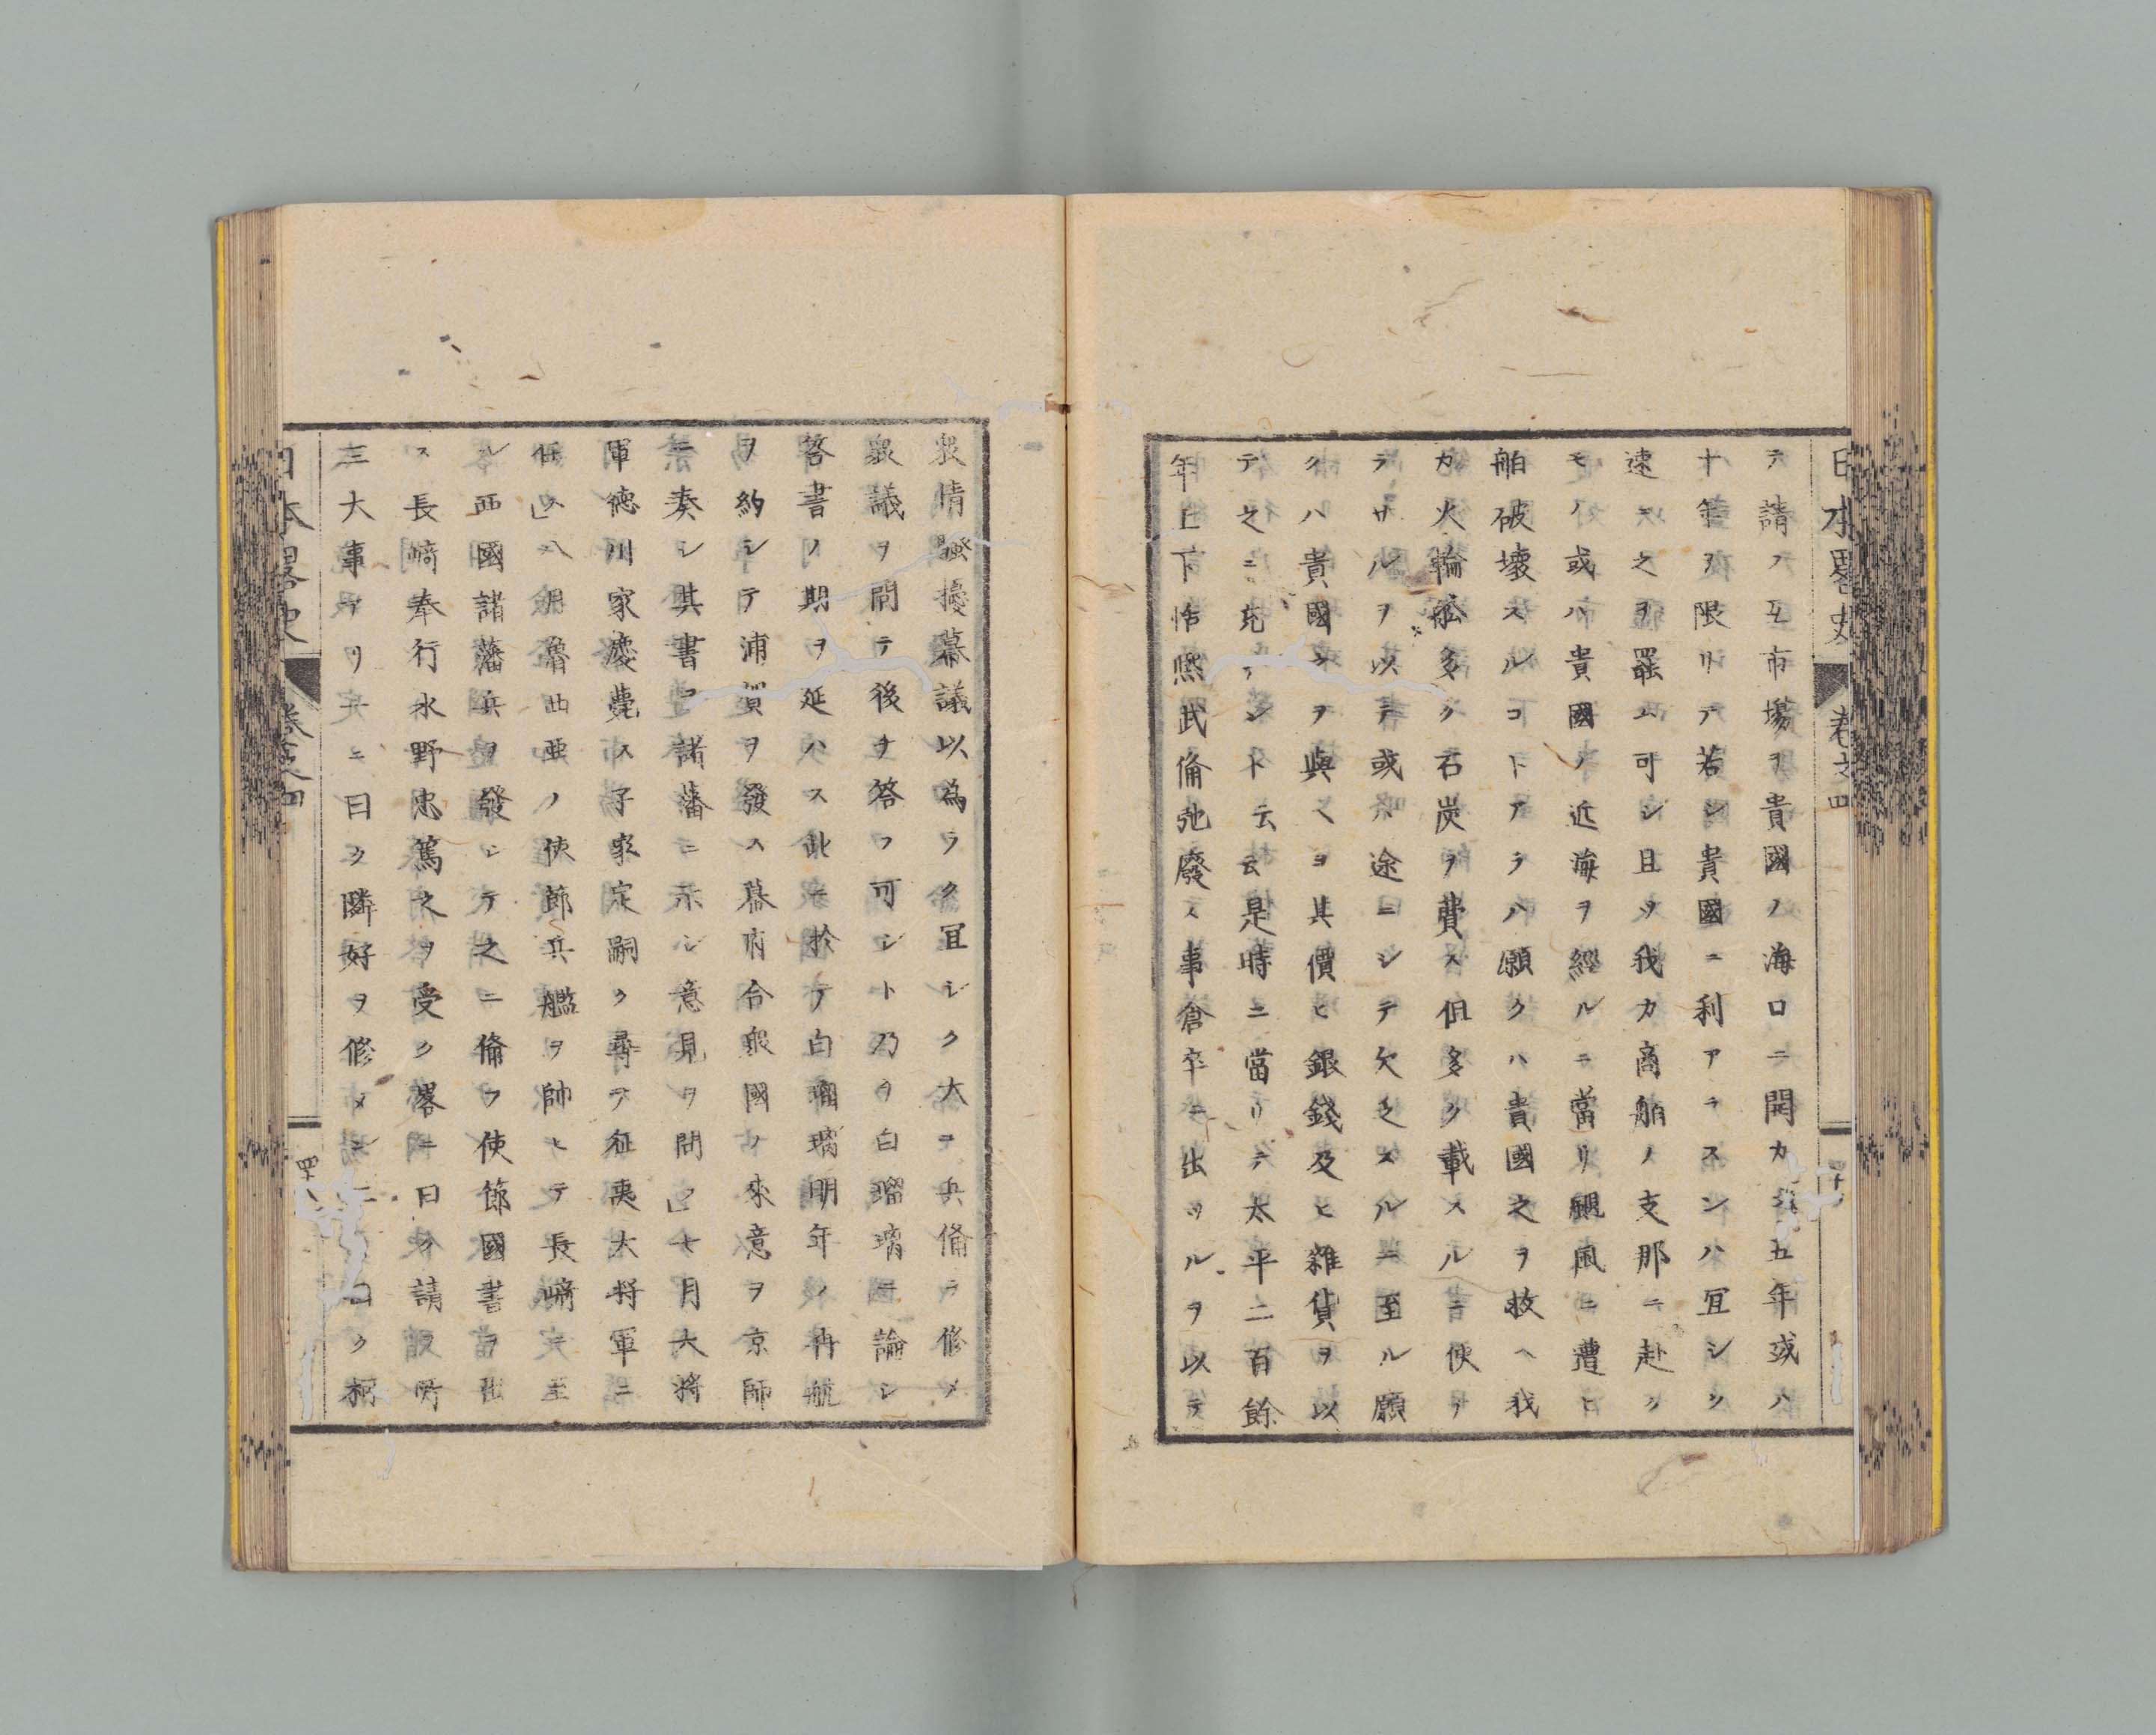 日本畧史 卷之四
テ請フ互市塲ヲ貴國ノ海口ニ開カ五年或ハ
十年ヲ限リテ若シ貴國ニ利アラスンハ宜シク
速ニ之ヲ罷ム可シ且ツ我カ商舶ノ支那ニ赴ク
モノ或ハ貴國ノ近海ヲ經ルニ當リ颶風ニ遭ヒ
舶破壞スルコトアラハ願クハ貴國之ヲ救ヘ我
カ火輪舩多ク石炭ヲ費ス但多ク載スルニ便ナ
ラサルヲ以テ或ハ途ニシテ欠乏スルニ至ル願
クハ貴國之ヲ與ヘヨ其價ヒ銀錢及ヒ雜貨ヲ以
テ之ニ充テント云云是時ニ當リテ太平二百餘
年上下恬熈武備弛廢ス事倉卒ニ出ツルヲ以テ
衆情騷擾幕議以爲ラク宜シク大ニ兵備ヲ修メ
衆議ヲ問テ後チ答フ可シト乃チ白瑠璃ニ論シ
答書ノ期ヲ延ハス此ニ於テ白瑠璃明年ノ再航
ヲ約シテ浦賀ヲ發ス幕府合衆國ノ來意ヲ京師
ニ奏シ其書ヲ諸藩ニ示シ意見ヲ問フ七月大將
軍德川家慶薨ス子家定嗣ク尋テ征夷大將軍ニ
任ス八月魯西亞ノ使節兵艦ヲ帥ヒテ長﨑ニ至
ル西國諸藩兵ヲ發シテ之ニ備フ使節國書ヲ出
ス長﨑奉行水野忠篤之ヲ受ク畧ニ曰ク請所
三大事アリ其一ニ曰ク隣好ヲ修メン二ニ曰ク柯
日本畧史 卷之四